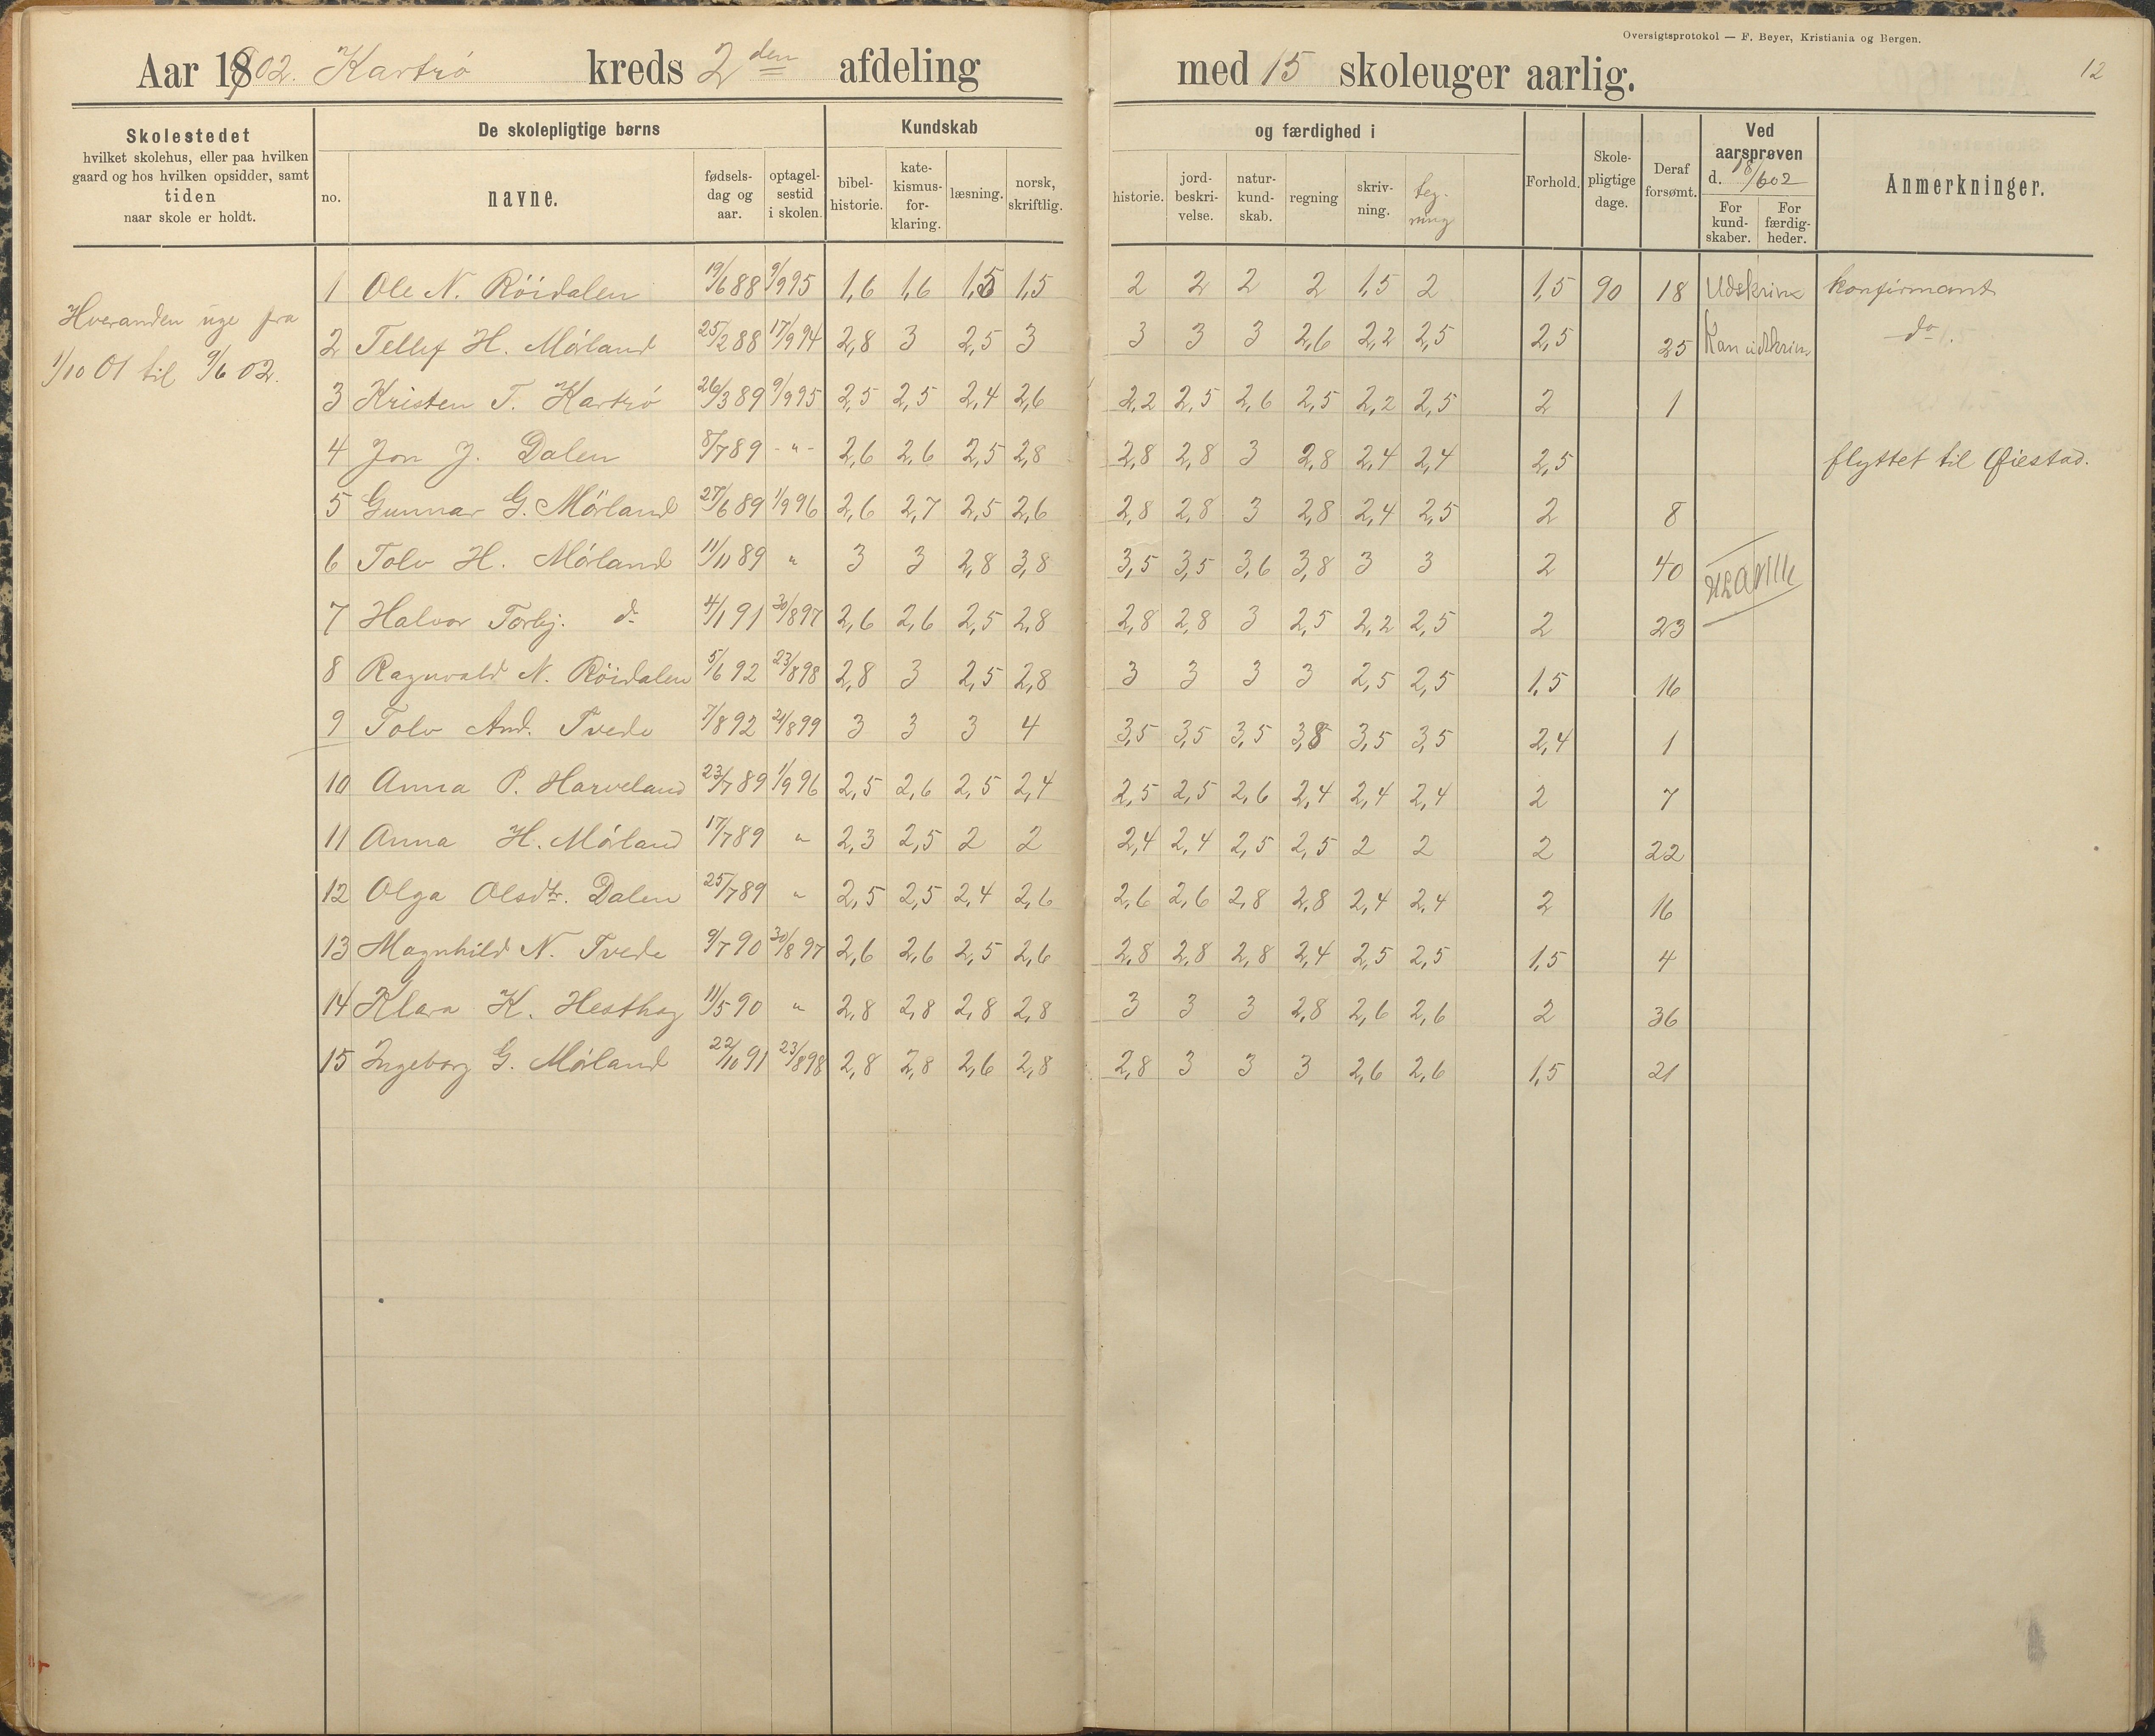 Oversigtsprotokol — F. Beyer, Kristiania og Bergen.
12
Aar 1902. Kartrö kreds 2den afdeling med 15 skoleuger aarlig.
Skolestedet hvilket skolehus, eller paa hvilken gaard og hos hvilken opsidder, samt tiden naar skole er holdt.
De skolepligtige børns
no. navne. fødsels-dag og aar. optagel-sestid i skolen.
Kundskab og færdighed i
bibel-historie. kate-kismus-for-klaring. læsning. norsk, skriftlig. historie. jord-beskri-velse. natur-kund-skab. regning skriv-ning. teg-ning
Forhold. Skole-pligtige dage. Deraf forsømt.
Ved aarsprøven d. 18/602
For kund-skaber. For færdig-heder.
Anmerkninger.
Hveranden uge fra
1/10 01 til 9/6 02.
1 Ole N. Röidalen 19/688 9/995 1,6 1,6 1,5 1,5 2 2 2 2 1,5 2 1,5 90 18 Udskrives konfirmant
2 Tellef H. Mörland 25/288 17/994 2,8 3 2,5 3 3 3 3 2,6 2,2 2,5 2,5 25 Kan udskrives do.
3 Kristen T. Kartrö 26/389 9/995 2,5 2,5 2,4 2,6 2,2 2,5 2,6 2,5 2,2 2,5 2 1
4 Jon J. Dalen 8/789 -"- 2,6 2,6 2,5 2,8 2,8 2,8 3 2,8 2,4 2,4 2,5 flyttet til Øiestad.
5 Gunnar G. Mörland 27/689 1/996 2,6 2,7 2,5 2,6 2,8 2,8 3 2,8 2,4 2,5 2 8
6 Tolv H. Mörland 11/1189 " 3 3 2,8 3,8 3,5 3,5 3,6 3,8 3 3 2 40
7 Halvor Torbj. do 4/191 30/897 2,6 2,6 2,5 2,8 2,8 2,8 3 2,5 2,2 2,5 2 23
8 Ragnvald N. Röidalen 5/692 23/898 2,8 3 2,5 2,8 3 3 3 3 2,5 2,5 1,5 16
9 Tolv And. Tvede 7/892 21/899 3 3 3 4 3,5 3,5 3,5 3,8 3,5 3,5 2,4 1
10 Anna P. Harveland 23/789 1/996 2,5 2,6 2,5 2,4 2,5 2,5 2,6 2,4 2,4 2,4 2 7
11 Anna H. Mörland 17/789 " 2,3 2,5 2 2 2,4 2,4 2,5 2,5 2 2 2 22
12 Olga Olsdtr. Dalen 25/789 " 2,5 2,5 2,4 2,6 2,6 2,6 2,8 2,8 2,4 2,4 2 16
13 Magnhild N. Tvede 9/790 30/897 2,6 2,6 2,5 2,6 2,8 2,8 2,8 2,4 2,5 2,5 1,5 4
14 Klara K. Hesthag 11/590 " 2,8 2,8 2,8 2,8 3 3 3 2,8 2,6 2,6 2 36
15 Ingeborg G. Mörland 22/1091 23/898 2,8 2,8 2,6 2,8 2,8 3 3 3 2,6 2,6 1,5 21